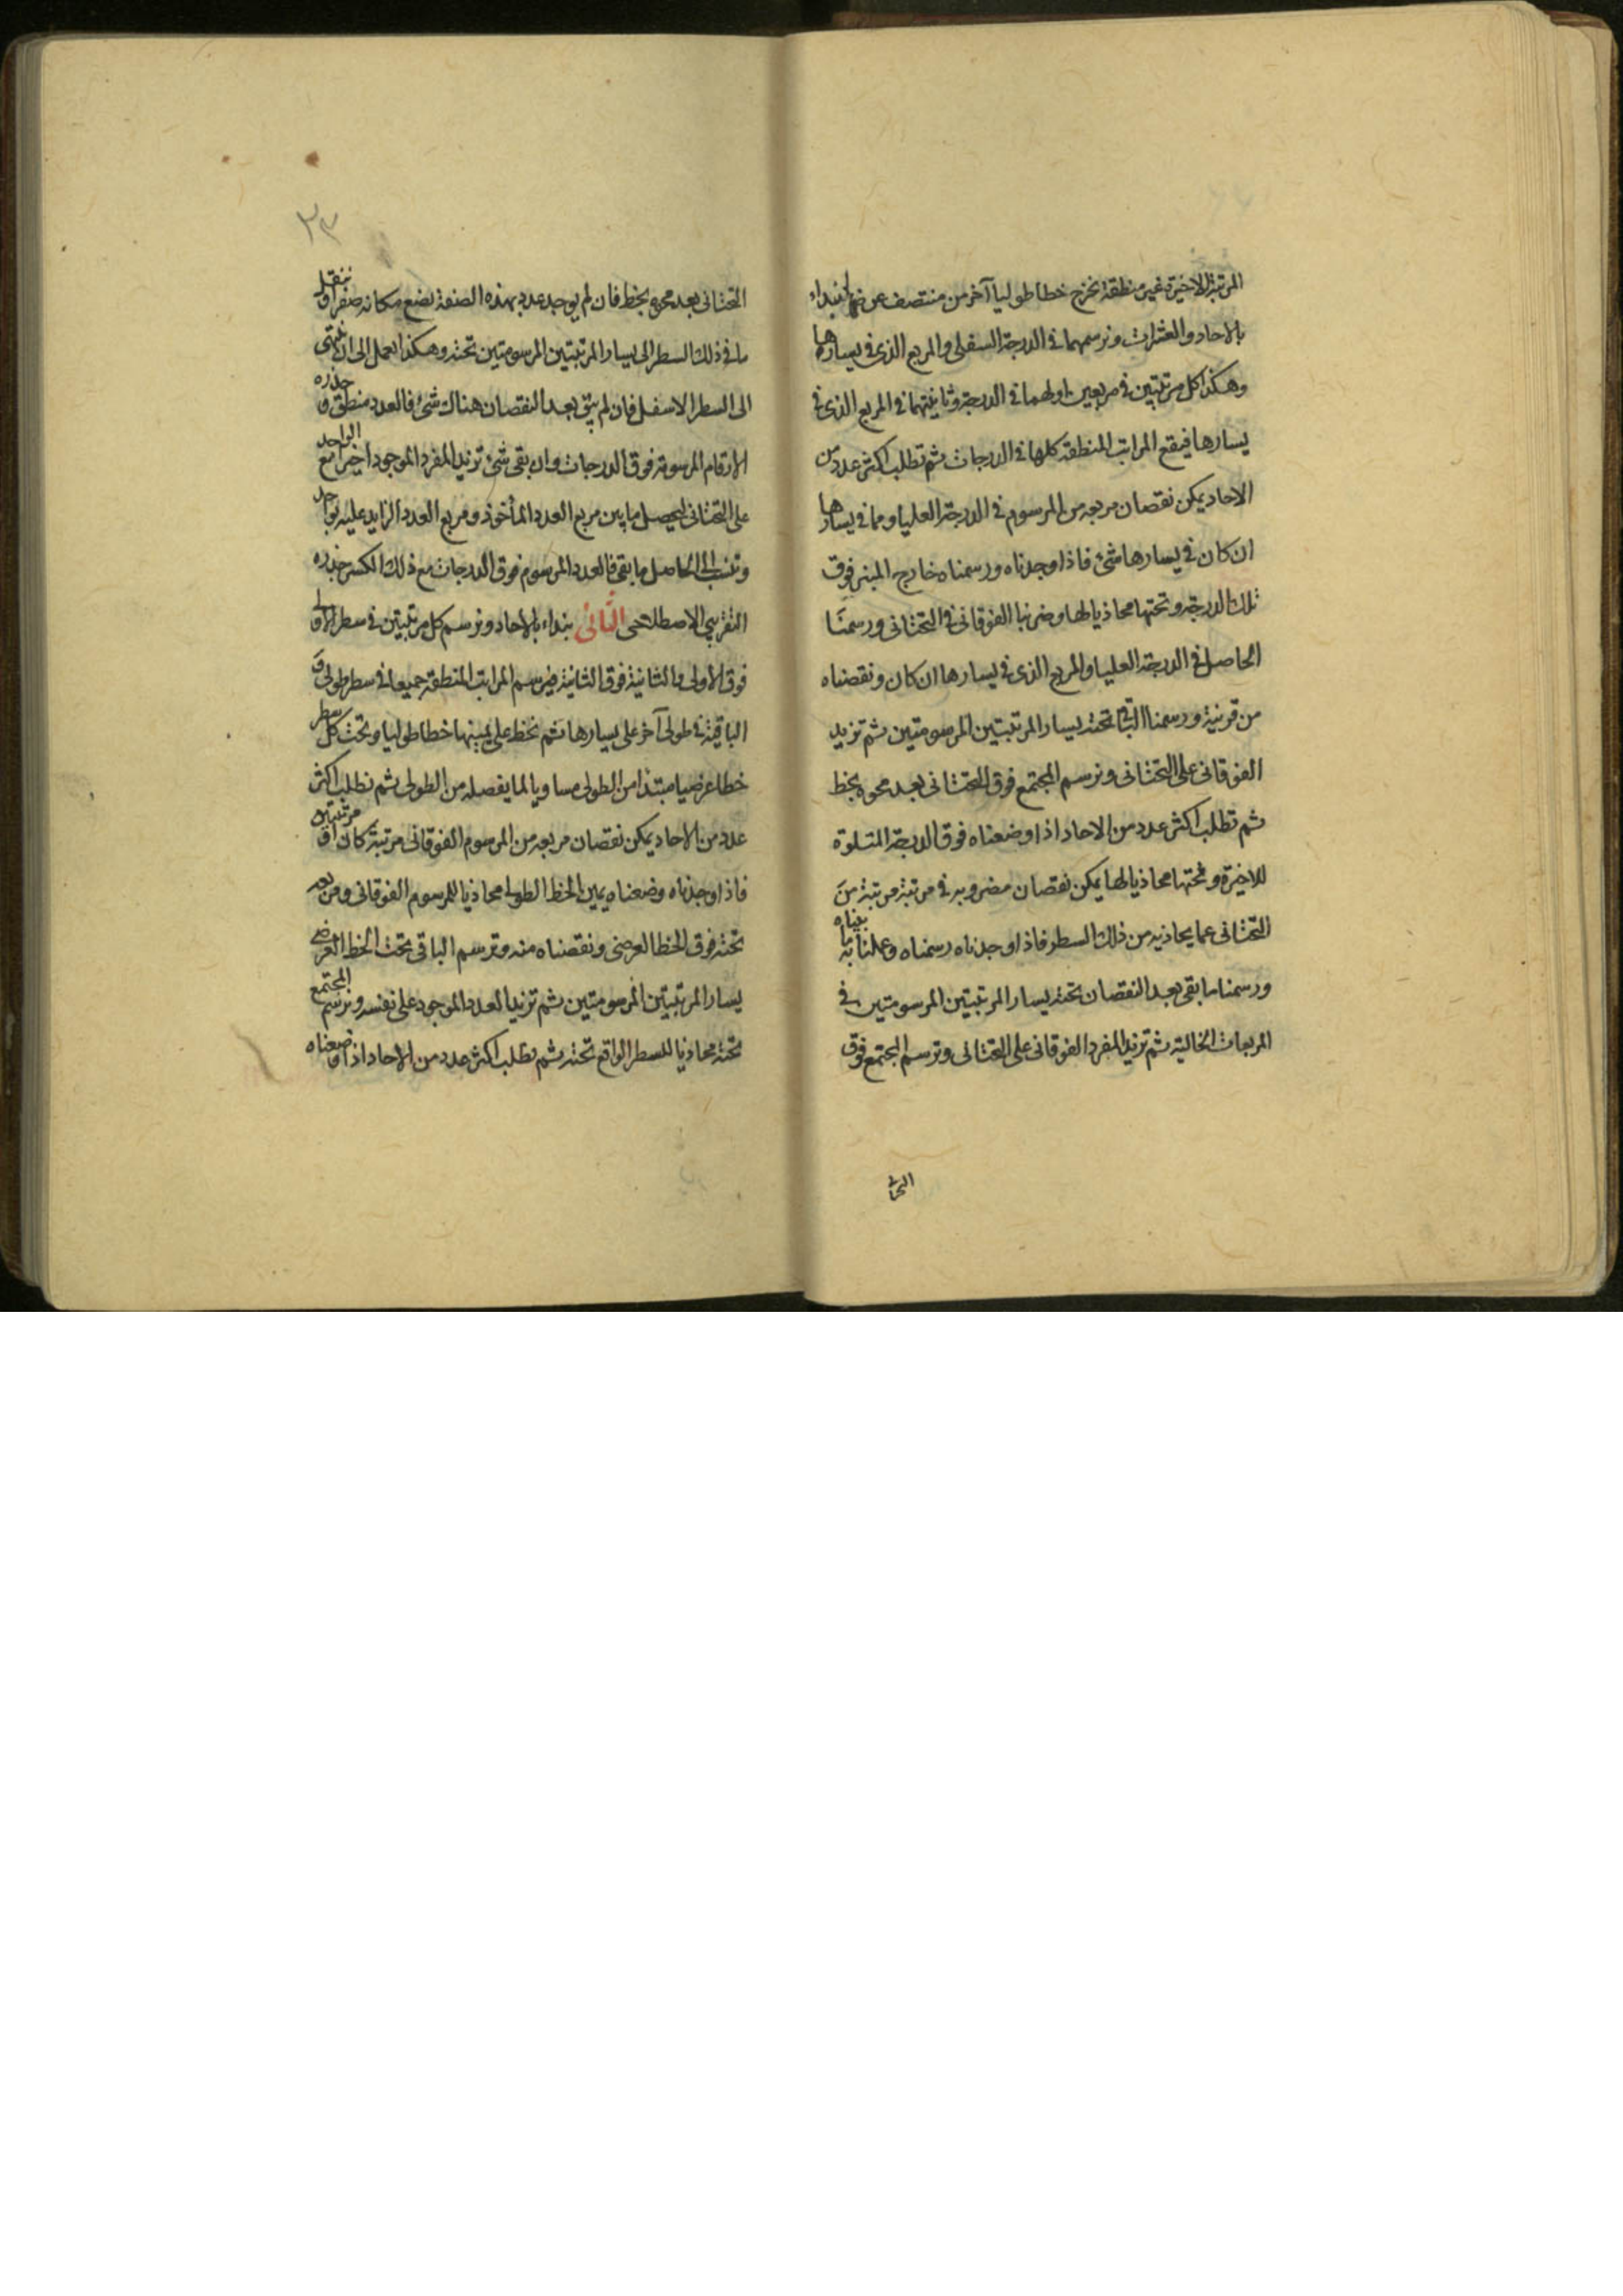 المرتبة الاخيرة غير منطقة نخرج خطا طوليا آخر من منتصف عرضها ثم نبداء
بالاحاد والعشرات ونرسمهما في الدرجة السفلى والمربع الذى في يسارها
وهكذا كل مرتبتين في مربعين اولهما في الدرجة وثانيتهما في المربع الذى في
يسارها فيقع المراتب المنطقة كلها في الدرجات ثم نطلب اكثر عدد من
الاحاد يمكن نقصان مربعه من المرسوم في الدرجة العليا ومما في يسارها
ان كان في يسارها شئ فاذا وجدناه ورسمناه خارج المبنى فوق
تلك الدرجة وتحتها محاذيا لها وضربنا الفوقانى في التحتانى ورسمنا
الحاصل في الدرجة العليا والمربع الذى في يسارها ان كان ونقصناه
من قرنية ورسمنا الباقى تحته يسار المرتبتين المرسومتين ثم نزيد
الفوقانى على التحتانى ونرسم المجتمع فوق التحتانى بعد محوه بخط
ثم نطلب اكثر عدد من الاحاد اذا وضعناه فوق الدرجة المتلوة
للاخيرة وتحتها محاذيا لها يمكن نقصان مضروبه في مرتبة مرتبة من
التحتانى عما يحاذيه من ذلك السطر فاذا وجدناه رسمناه وعملنا به ما بيناه
ورسمنا ما بقى بعد النقصان تحته يسار المرتبتين المرسومتين في
المربعات الخالية ثم نزيد المفرد الفوقانى على التحتانى ونرسم المجتمع فوق
٣٣
التحتانى بعد محوه بخط فان لم يوجد عدد بهذه الصفة نضع مكانه صفرا وننقل
ما في ذلك السطر الى يسار المرتبتين المرسومتين تحته وهكذا العمل الى ان ينتهى
الى السطر الاسفل فان لم يبق بعد النقصان هناك شئ فالعدد منطق وجذره
الارقام المرسومة فوق الدرجات وان بقى شئ نزيد المفرد الموجود اخيرا مع الواحد
على التحتانى ليحصل ما بين مربع العدد المأخوذ ومربع العدد الزايد عليه بواحد
وننسب الى الحاصل ما بقى فالعدد المرسوم فوق الدرجات مع ذلك الكسر جذره
التقريبي الاصطلاحى الثانى نبداء بالاحاد ونرسم كل مرتبتين في سطر الاولى
فوق الاولى والثانية فوق الثانية فيرسم المراتب المنطقة جميعا في سطر طولى و
الباقية في طولى آخر على يسارها ثم نخط على يمينها خطا طوليا وتحت كل سطر
خطا عرضيا مبتدا من الطولى مساويا لما يفصله من الطولى ثم نطلب اكثر
عدد من الاحاد يمكن نقصان مربعه من المرسوم الفوقانى مرتبة كان او مرتبتين
فاذا وجدناه وضعناه يمين الخط الطولى محاذيا للمرسوم الفوقانى ومربعه
تحته فوق الخط العرضى ونقصناه منه ونرسم الباقى تحت الخط العرضى
يسار المرتبتين المرسومتين ثم نزيد العدد الموجود على نفسه ونرسم المجتمع
تحته محاذيا للسطر الواقع تحته ثم نطلب اكثر عدد من الاحاد اذا وضعناه